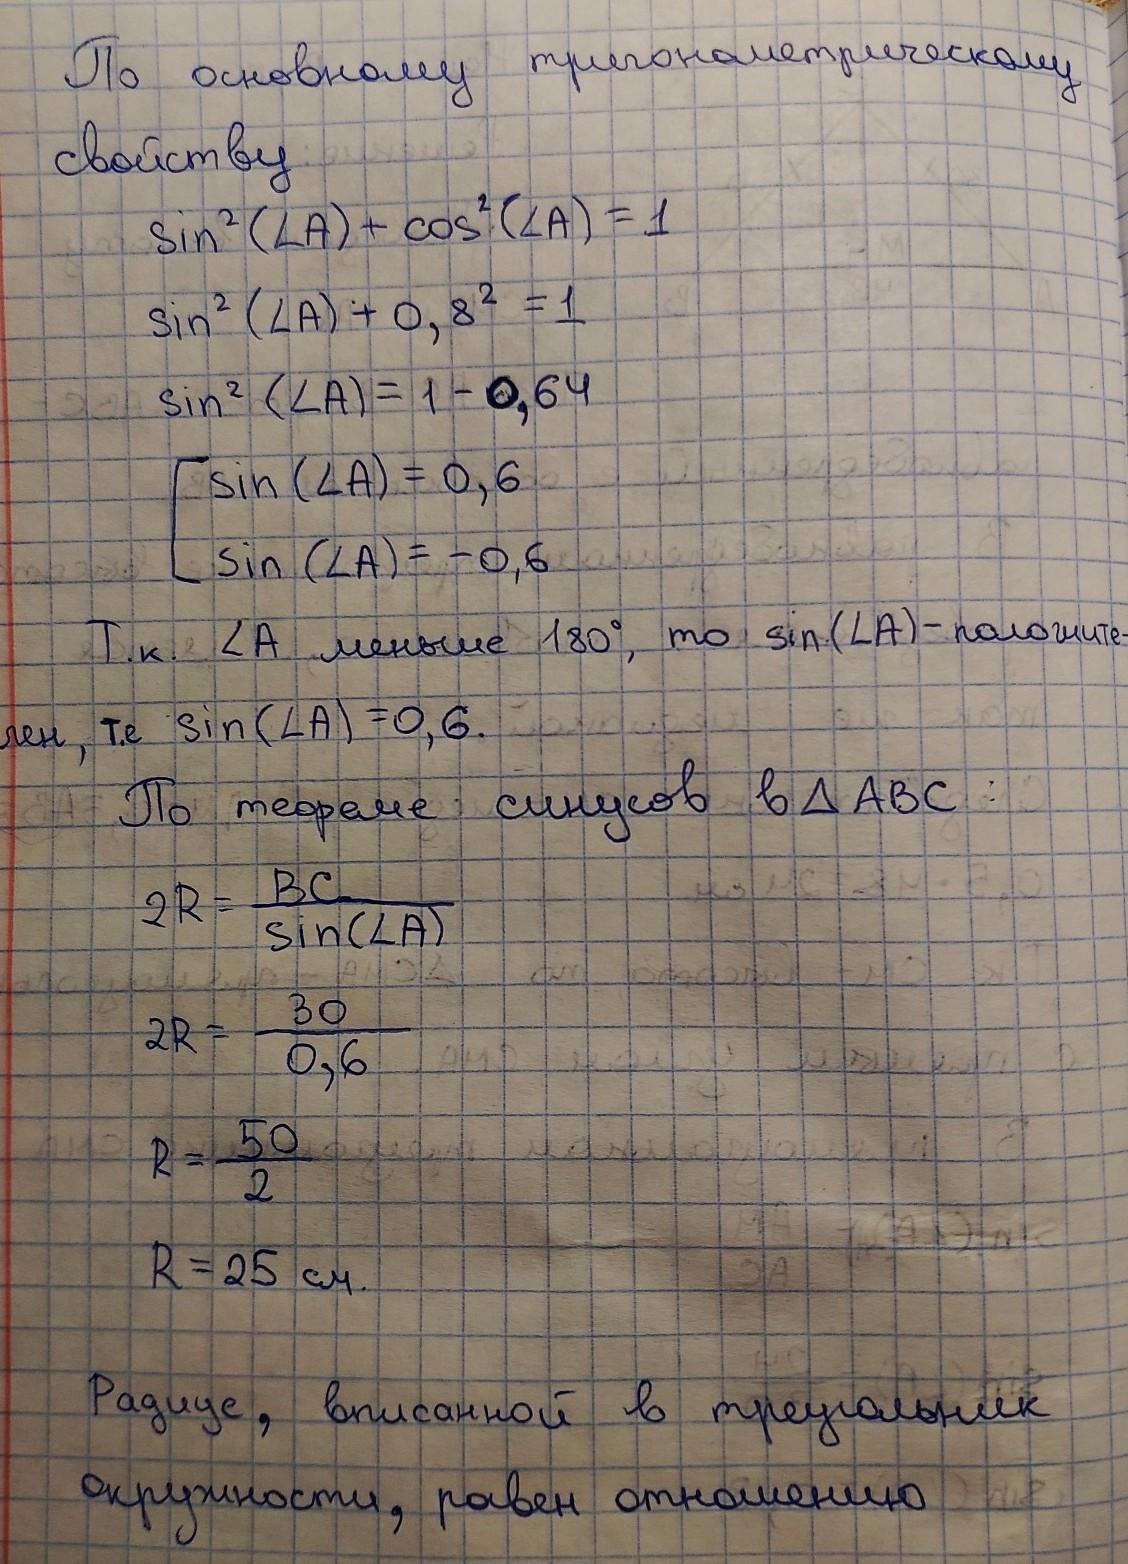 По основному тригонометрическому
свойству
sin²(∠A) + cos²(∠A) = 1
sin²(∠A) + 0,8² = 1
sin²(∠A) = 1 - 0,64
sin(∠A) = 0,6
sin(∠A) = -0,6
Т.к. ∠A меньше 180°, то sin(∠A) - положите-
лен, т.е sin(∠A) = 0,6.
По теореме синусов в △ABC :
2R = BC / sin(∠A)
2R = 30 / 0,6
R = 50 / 2
R = 25 см.
Радиус, вписанной в треугольник
окружности, равен отношению